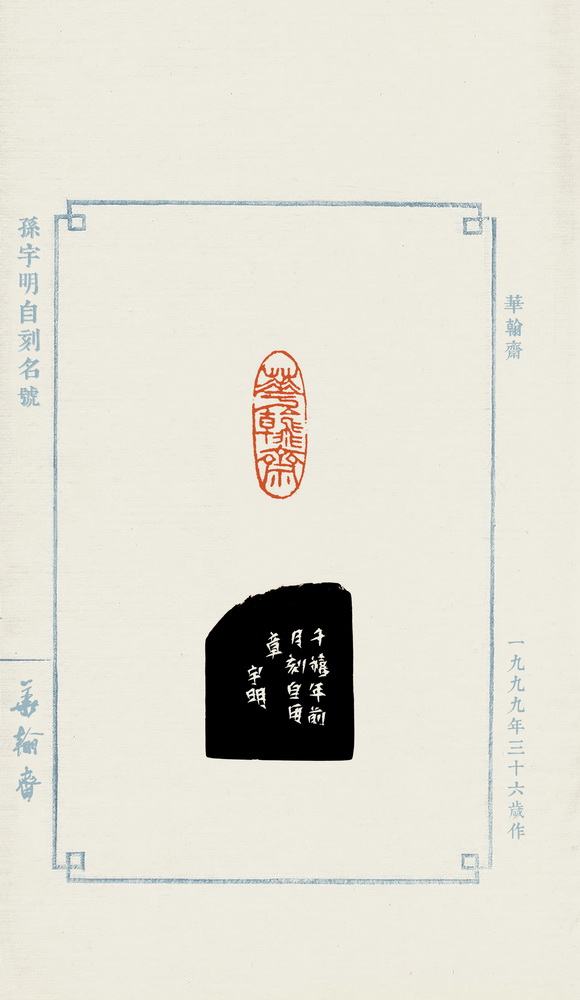 華翰齋
一九九九年三十六歲作
華翰齋
千禧年前
月刻自用
章
宇明
孫宇明自刻名號
華翰齋